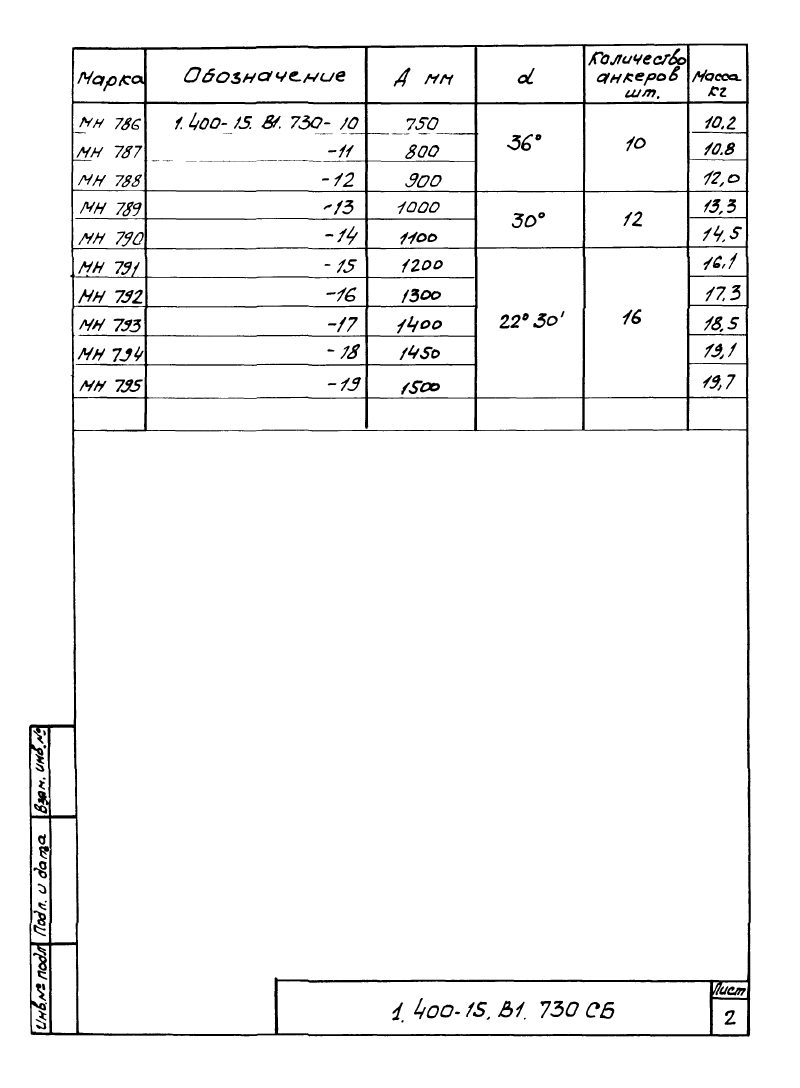 Марка Обозначение Д мм α Количество анкеров шт. Масса кг
МН 786 1.400-15. В1. 730-10 750 36° 10 10.2
МН 787 -11 800 10.8
МН 788 -12 900 12,0
МН 789 -13 1000 30° 12 13,3
МН 790 -14 1100 14,5
МН 791 -15 1200 22° 30' 16 16,1
МН 792 -16 1300 17.3
МН 793 -17 1400 18,5
МН 794 -18 1450 19,1
МН 795 -19 1500 19,7
Взам. инв. №
Подп. и дата
Инв. № подл
1. 400-15. В1. 730 СБ
Лист
2